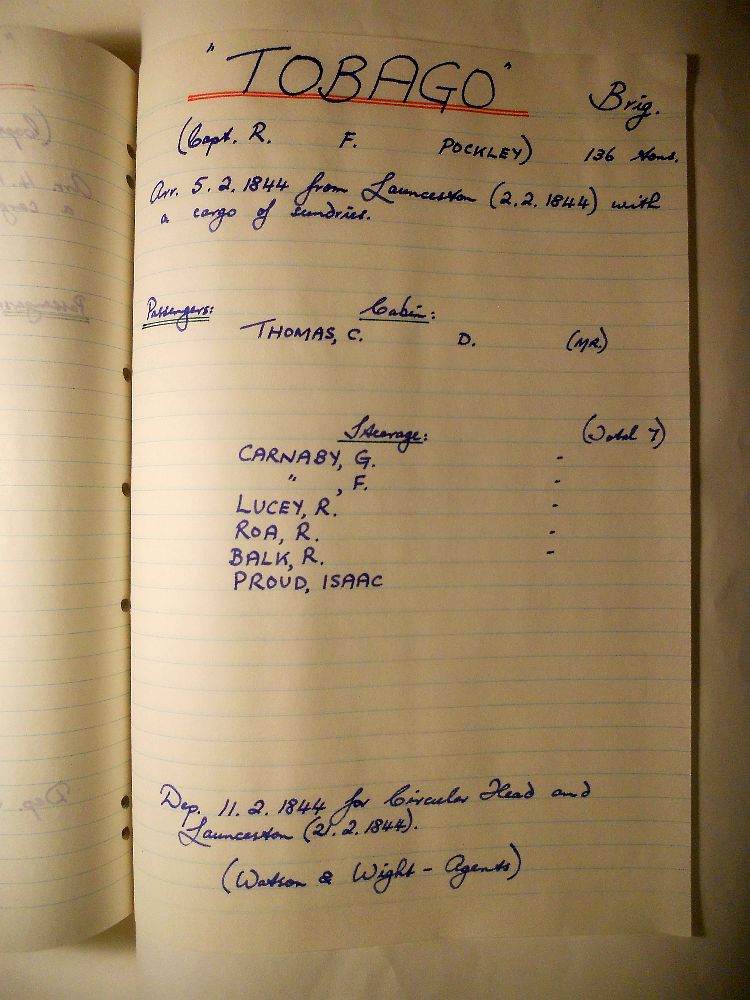 "TOBAGO" Brig.
(Capt. R. F. POCKLEY) 136 tons.
Arr. 5.2.1844 from Launceston (2.2.1844) with
a cargo of sundries.
Passengers: Cabin:
THOMAS, C. D. (MR.)
Steerage: (Total 7)
CARNABY, G. -
" , F. -
LUCEY, R. -
ROA, R. -
BALK, R. -
PROUD, ISAAC
Dep. 11.2.1844 for Circular Head and
Launceston (21.2.1844).
(Watson & Wight - Agents)